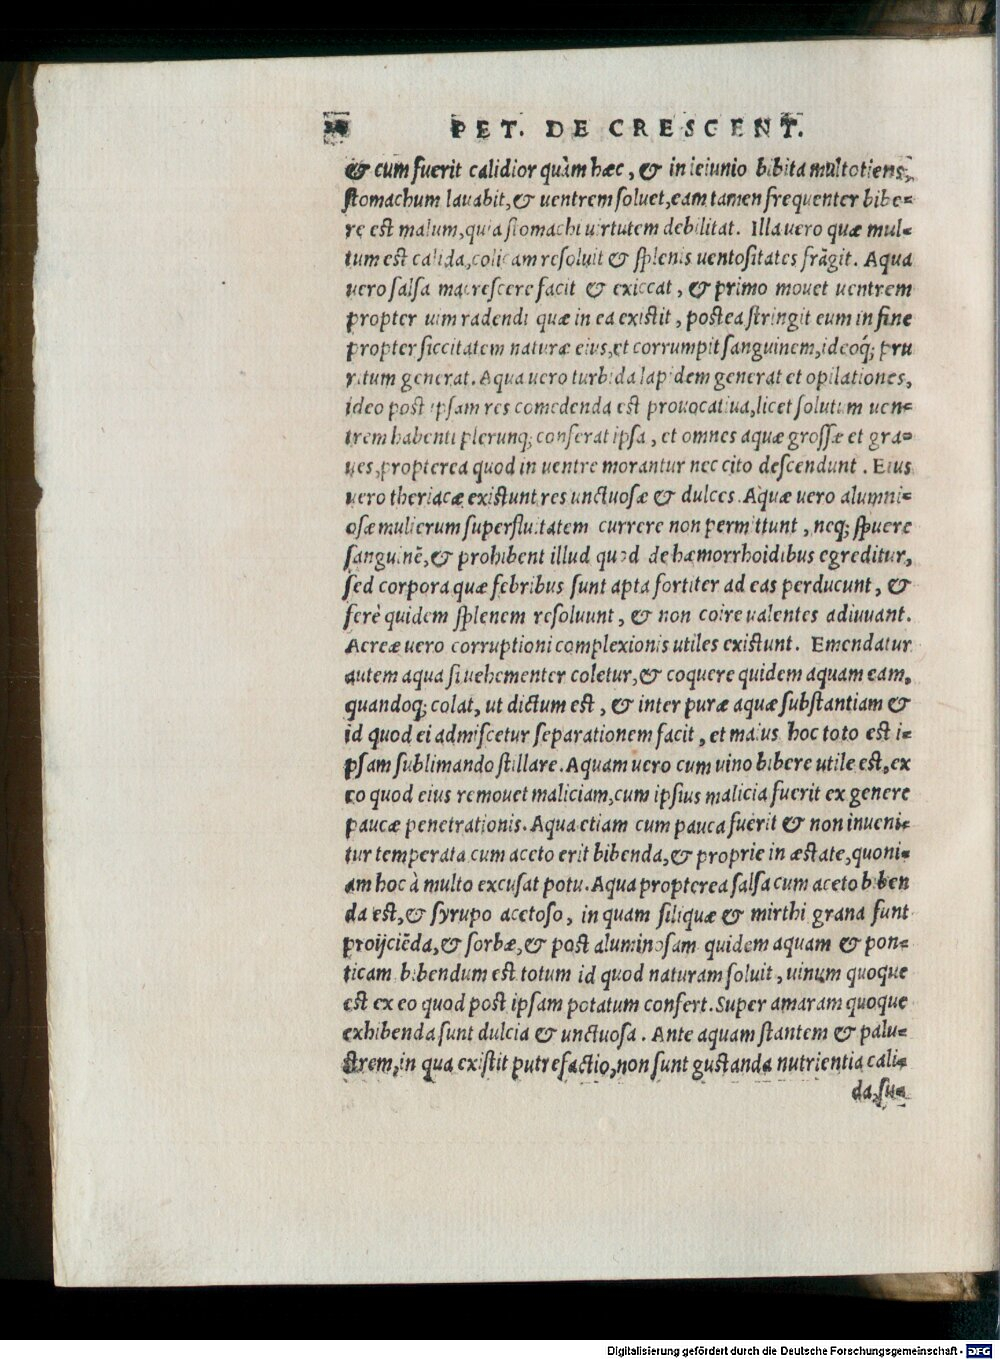 PET. DE CRESCENT.
& cum fuerit calidior quàm hæc, & in ieiunio bibita multotiens,
stomachum lauabit, & uentrem soluet, eam tamen frequenter bibe-
re est malum, quia stomachi uirtutem debilitat. Illa uero quæ mul-
tum est calida, colicam resoluit & splenis uentositates frãgit. Aqua
uero salsa macrescere facit & exiccat, & primo mouet uentrem
propter uim radendi quæ in ea existit, postea stringit eum in fine
propter siccitatem naturæ eius, et corrumpit sanguinem, ideoq; pru
ritum generat. Aqua uero turbida lapidem generat et opilationes,
ideo post ipsam res comedenda est prouocatiua, licet solutum uen-
trem habenti plerunq; conferat ipsa, et omnes aquæ grossæ et gra-
ues, propterea quod in uentre morantur nec cito descendunt. Eius
uero theriacæ existunt res unctuosæ & dulces. Aquæ uero alumni-
osæ mulierum superfluitatem currere non permittunt, neq; spuere
sanguinẽ, & prohibent illud quod de hæmorrhoidibus egreditur,
sed corpora quæ febribus sunt apta fortiter ad eas perducunt, &
ferè quidem splenem resoluunt, & non coire ualentes adiuuant.
Aereæ uero corruptioni complexionis utiles existunt. Emendatur
autem aqua si uehementer coletur, & coquere quidem aquam eam,
quandoq; colat, ut dictum est, & inter puræ aquæ substantiam &
id quod ei admiscetur separationem facit, et maius hoc toto est i-
psam sublimando stillare. Aquam uero cum uino bibere utile est, ex
eo quod eius remouet maliciam, cum ipsius malicia fuerit ex genere
paucæ penetrationis. Aqua etiam cum pauca fuerit & non inueni-
tur temperata cum aceto erit bibenda, & proprie in æstate, quoni-
am hoc à multo excusat potu. Aqua propterea salsa cum aceto biben
da est, & syrupo acetoso, in quam siliquæ & mirthi grana sunt
proijciẽda, & sorbæ, & post aluminosam quidem aquam & pon-
ticam bibendum est totum id quod naturam soluit, uinum quoque
est ex eo quod post ipsam potatum confert. Super amaram quoque
exhibenda sunt dulcia & unctuosa. Ante aquam stantem & palu-
strem, in qua existit putrefactio, non sunt gustanda nutrientia cali-
da, su-
Digitalisierung gefördert durch die Deutsche Forschungsgemeinschaft - DFG